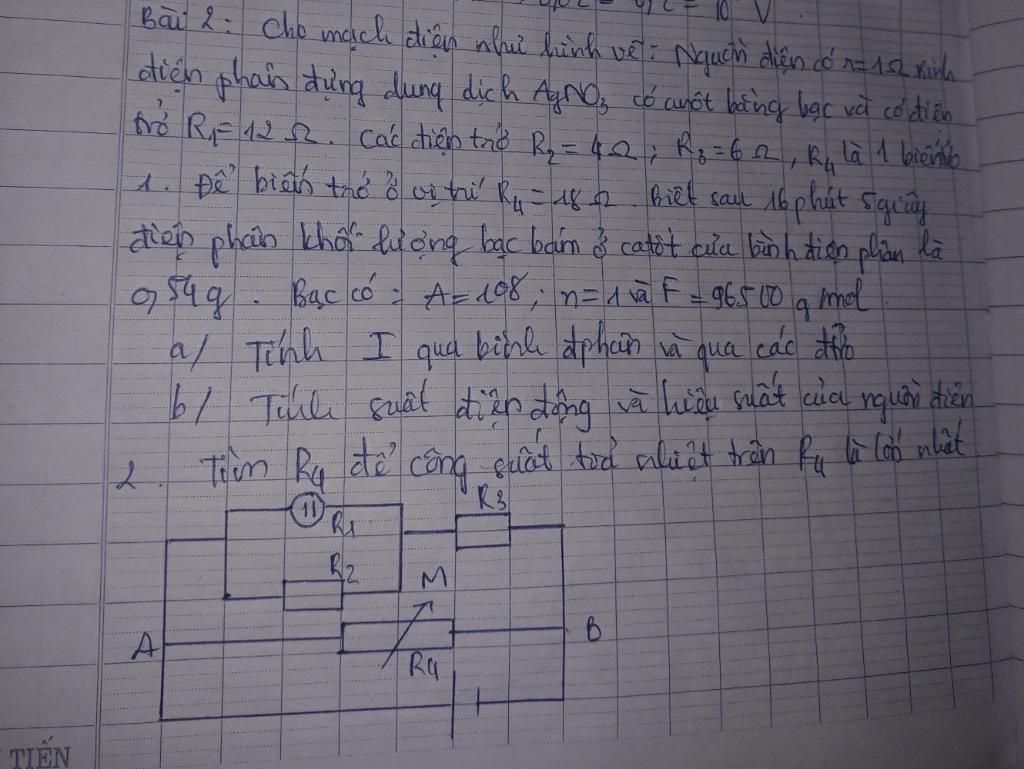 Bài 2: Cho mạch điện như hình vẽ: Nguồn điện có r=1Ω bình
điện phân đựng dung dịch AgNO3 có cực bằng bạc và có điện
trở R1=12 Ω. Các điện trở R2=4Ω; R3=6Ω, R4 là 1 biến
1. Để biến trở ở vị trí R4=18Ω. Biết sau 16 phút 5 giây
điện phân khối lượng bạc bám ở catôt của bình điện phân là
0,54g. Bạc có: A=108; n=1 và F=96500 g mol
a/ Tính I qua bình đphân và qua các đtrở
b/ Tính suất điện động và hiệu suất của nguồn điện
2. Tìm R4 để công suất toả nhiệt trên R4 là lớn nhất
R3
R1
R2
M
A
B
R4
TIẾN